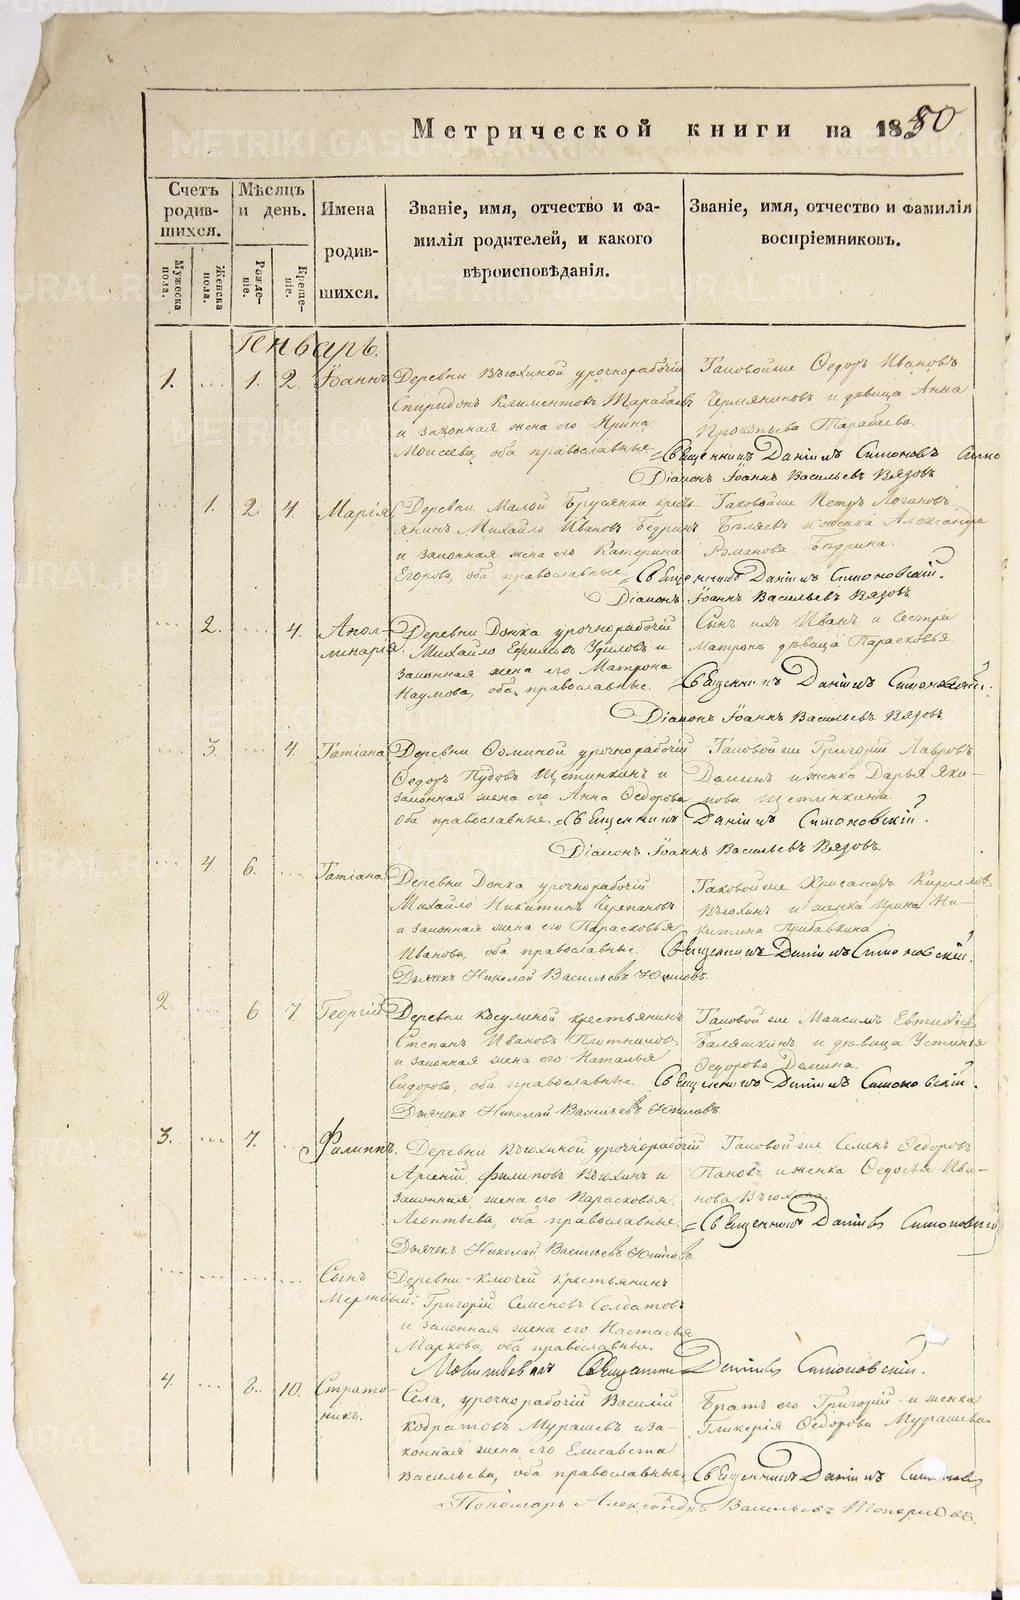 Метрической книги на 1850
Счетъ родив-шихся.
Мѣсяцъ и день.
Имена родив-шихся.
Званіе, имя, отчество и фа-
милія родителей, и какого
вѣроисповѣданія.
Званіе, имя, отчество и фамилія
воспріемниковъ.
Мужеска пола.
Женска пола.
Рожде-ніе.
Креще-ніе.
Генварь.
1. ... 1. 2. Іоаннъ Деревни Вьюхиной урочнорабочій Таковойже Ѳедоръ Ивановъ
Спиридонъ Климентовъ Тарабаевъ Черемяниновъ и дѣвица Анна
и законная жена его Ирина Прокопьева Тарабаева.
Моисеева, оба православные. Священникъ Даніилъ Симоновскій
Діаконъ Іоаннъ Васильевъ Вязовъ
... 1. 2. 4. Марія Деревни Малой Брусянки кресть- Таковойже Петръ Логиновъ
янинъ Михайло Ивановъ Бедринъ Бѣляевъ и женка Александра
и законная жена его Катерина Романова Бедрина.
Егорова, оба православные. Священникъ Даніилъ Симоновскій.
Діаконъ Іоаннъ Васильевъ Вязовъ
... 2. ... 4. Апол- Деревни Донка урочнорабочій Сынъ ихъ Иванъ и сестра
линарія. Михайло Ефимовъ и Матроны дѣвица Парасковья.
законная жена его Матрона
Наумова, оба православные. Священникъ Даніилъ Симоновскій.
Діаконъ Іоаннъ Васильевъ Вязовъ
... 3. ... 4. Татіана Деревни Ѳоминой урочнорабочій Таковойже Григорій Лавровъ
Ѳедоръ Пудовъ Щетинкинъ и Деминъ и женка Дарья Яки-
законная жена его Анна Ѳедорова мова Щетинкина.
оба православные. Священникъ Даніилъ Симоновскій.
Діаконъ Іоаннъ Васильевъ Вязовъ
... 4 6. ... Татіана Деревни Донка урочнорабочій Таковойже Хрисанфъ Кириловъ
Михайло Никитинъ Черепановъ Вьюхинъ и женка Ирина Ни-
и законная жена его Парасковья китина Прибавкина
Иванова, оба православные. Священникъ Даніилъ Симоновскій.
Дьячекъ Николай Васильевъ
2. ... 6 7. Георгій Деревни Космуиной крестьянинъ Таковойже Максимъ
Степанъ Ивановъ Плотниковъ Баляшкинъ и дѣвица Устинья
и законная жена его Наталья Ѳедорова Демина.
Сидорова, оба православные. Священникъ Даніилъ Симоновскій.
Дьячекъ Николай Васильевъ
3. ... 7. ... Филиппъ. Деревни Вьюхиной урочнорабочій Таковойже Семенъ Ѳедоровъ
Арсеній Филиповъ Вьюхинъ и Пановъ и женка Ѳедосья Ива-
законная жена его Парасковья нова Вьюхина.
Леонтьева, оба православные. Священникъ Даніилъ Симоновскій
Дьячекъ Николай Васильевъ
... ... ... ... Сынъ Деревни Ключей крестьянинъ
Мертвый: Григорій Семеновъ Солдатовъ
и законная жена его Настасья
Маркова, оба православные.
Молитвовалъ Священникъ Даніилъ Симоновскій.
4. ... 8. 10. Страто- Села, урочнорабочій Василій Братъ его Григорій и женка
никъ. Кодратовъ Мурашевъ и за- Гликерія Ѳедорова Мурашева.
конная жена его Елисавета
Васильева, оба православные. Священникъ Даніилъ Симоновскій
Пономарь Александръ Васильевъ Топорковъ.